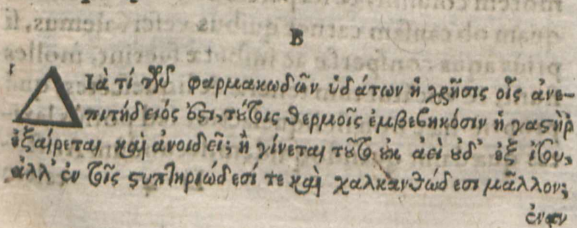 B
Διὰ τί τῶν φαρμακωδῶν ὑδάτων ἡ χρῆσις οἷς ἀνε-
πιτήδειός ἐστι, τούτοις θερμοῖς ἐμβεβηκόσιν ἡ γαστὴρ
ἐξαίρεται καὶ ἀνοιδεῖ; ἢ γίνεται τοῦτο οὐκ ἀεὶ οὐδ' ἐξ
ἀλλ' ἐν τοῖς στυπτηριώδεσί τε καὶ χαλκανθώδεσι μᾶλλον;